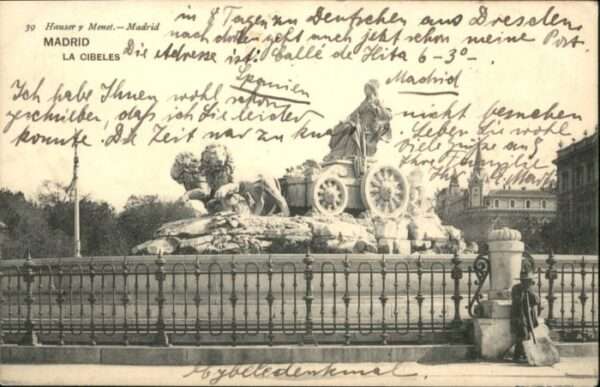 39 Hauser y Menet.—Madrid
MADRID
LA CIBELES
in 8 Tagen zu Deutschen aus Dresden,
nach dort geht auch jetzt schon meine Post.
Die Adresse ist: Callé de Hita 6-3º-
Spanien Madrid
Ich habe Ihnen wohl schon
geschrieben, daß ich Sie leider
konnte. Die Zeit war zu knapp
nicht besuchen
Leben Sie wohl
viele Grüße an
Ihre Familie
Ihr
Cybeledenkmal.